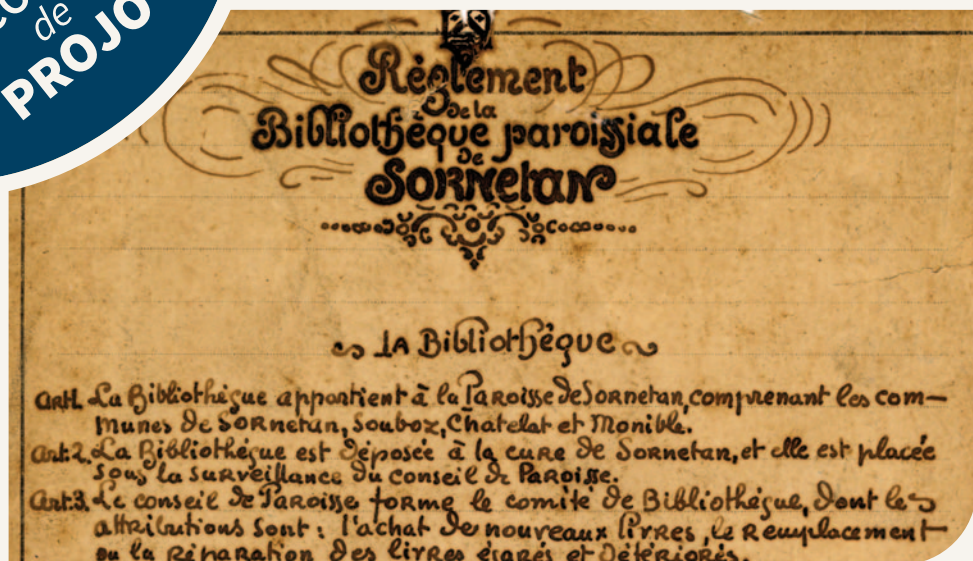 de
PROJO
Règlement
de la
Bibliothèque paroissiale
de
Sornetan
La Bibliothèque
Art.1. La Bibliothèque appartient à la Paroisse de Sornetan, comprenant les com-
munes de Sornetan, Souboz, Châtelat et Monible.
Art.2. La Bibliothèque est déposée à la cure de Sornetan, et elle est placée
sous la surveillance du conseil de Paroisse.
Art.3. Le conseil de Paroisse forme le comité de Bibliothèque, dont les
attributions sont : l'achat de nouveaux livres, le remplacement
ou la réparation des livres égarés et détériorés.